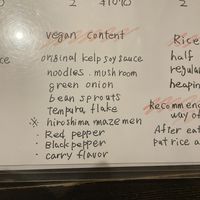 2 $10.70 2
Vegan content
original kelp soy sauce
noodles. mushroom
green onion
bean sprouts
tempura flake
※ hiroshima mazemen
・Red pepper
・Black pepper
・carry flavor
ce
Rice
half
regula
heapin
Recommen
way of
After eat
pat rice a